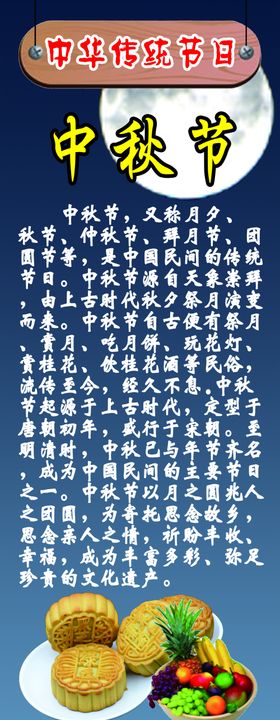 中华传统节日
中秋节
中秋节，又称月夕、
秋节、仲秋节、拜月节、团
圆节等，是中国民间的传统
节日。中秋节源自天象崇拜
，由上古时代秋夕祭月演变
而来。中秋节自古便有祭月
、赏月、吃月饼、玩花灯、
赏桂花、饮桂花酒等民俗，
流传至今，经久不息。中秋
节起源于上古时代，定型于
唐朝初年，盛行于宋朝。至
明清时，中秋已与年节齐名
，成为中国民间的主要节日
之一。中秋节以月之圆兆人
之团圆，为寄托思念故乡，
思念亲人之情，祈盼丰收、
幸福，成为丰富多彩、弥足
珍贵的文化遗产。